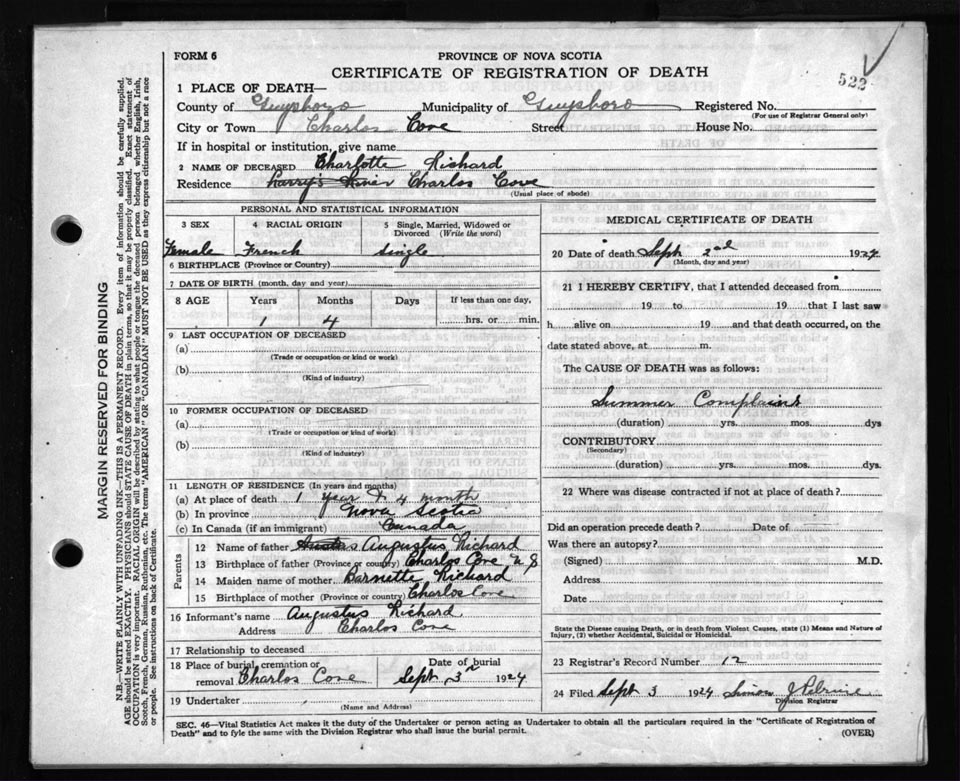 FORM 6
PROVINCE OF NOVA SCOTIA
CERTIFICATE OF REGISTRATION OF DEATH
522
1 PLACE OF DEATH—
County of Guysboro Municipality of Guysboro Registered No.
(For use of Registrar General only)
City or Town Charlos Cove Street House No.
If in hospital or institution, give name
2 NAME OF DECEASED Charlotte Richard
Residence Larry's River Charlos Cove
(Usual place of abode)
PERSONAL AND STATISTICAL INFORMATION
3 SEX 4 RACIAL ORIGIN 5 Single, Married, Widowed or Divorced (Write the word)
Female French single
6 BIRTHPLACE (Province or Country)
7 DATE OF BIRTH (month, day and year)
8 AGE Years Months Days If less than one day,
1 4 hrs. or min.
9 LAST OCCUPATION OF DECEASED
(a)
(Trade or occupation or kind or work)
(b)
(Kind of industry)
10 FORMER OCCUPATION OF DECEASED
(a)
(Trade or occupation or kind of work)
(b)
(Kind of industry)
11 LENGTH OF RESIDENCE (In years and months)
(a) At place of death 1 year & 4 month
(b) In province Nova Scotia
(c) In Canada (if an immigrant) Canada
Parents
12 Name of father Augustus Richard
13 Birthplace of father (Province or country) Charlos Cove N S
14 Maiden name of mother Barnette Richard
15 Birthplace of mother (Province or country) Charlos Cove
16 Informant's name Augustus Richard
Address Charlos Cove
17 Relationship to deceased
18 Place of burial, cremation or removal Charlos Cove Date of burial Sept 3 1924
19 Undertaker
(Name and Address)
MEDICAL CERTIFICATE OF DEATH
20 Date of death Sept 2nd 1924
(Month, day and year)
21 I HEREBY CERTIFY, that I attended deceased from
19 to 19 that I last saw
h alive on 19 and that death occurred, on the
date stated above, at m.
The CAUSE OF DEATH was as follows:
Summer Complaint
(duration) yrs. mos. dys
CONTRIBUTORY
(Secondary)
(duration) yrs. mos. dys.
22 Where was disease contracted if not at place of death?
Did an operation precede death? Date of
Was there an autopsy?
(Signed) M.D.
Address
Date
State the Disease causing Death, or in death from Violent Causes, state (1) Means and Nature of
Injury, (2) whether Accidental, Suicidal or Homicidal.
23 Registrar's Record Number 12
24 Filed Sept 3 1924 Simon J Pelrine
Division Registrar
SEC. 46—Vital Statistics Act makes it the duty of the Undertaker or person acting as Undertaker to obtain all the particulars required in the "Certificate of Registration of
Death" and to fyle the same with the Division Registrar who shall issue the burial permit.
(OVER)
MARGIN RESERVED FOR BINDING
N.B.—WRITE PLAINLY WITH UNFADING INK—THIS IS A PERMANENT RECORD. Every item of information should be carefully supplied.
AGE should be stated EXACTLY. PHYSICIANS should STATE CAUSE OF DEATH in plain terms, so that it may be properly classified. Exact statement of
OCCUPATION is very important. RACIAL ORIGIN will be described by stating to what people or tongue the deceased person belonged whether English, Irish,
Scotch, French, German, Russian, Ruthenian, etc. The terms "AMERICAN" OR "CANADIAN" MUST NOT BE USED as they express citizenship but not a race
or people. See instructions on back of Certificate.